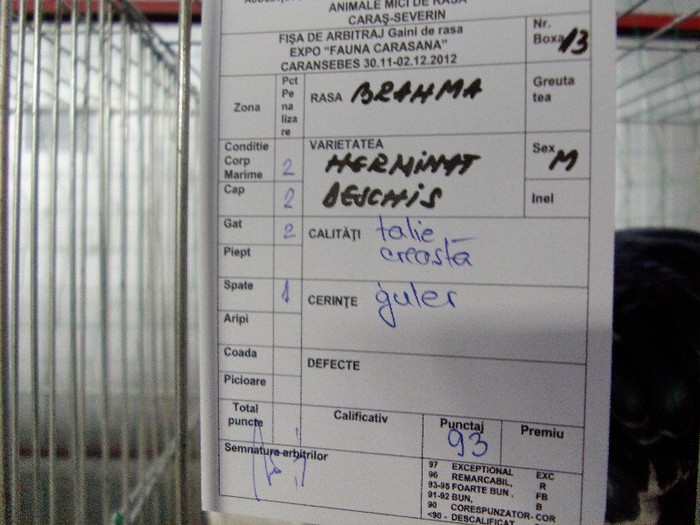 ANIMALE MICI DE RASA
CARAŞ-SEVERIN
FIŞA DE ARBITRAJ Gaini de rasa
EXPO "FAUNA CARASANA"
CARANSEBES 30.11-02.12.2012
Nr.
Boxa 13
Zona
Pct
Pe
na
liza
re
RASA BRAHMA
Greuta
tea
Conditie
Corp
Marime 2
VARIETATEA
HERMINAT
DESCHIS
Sex M
Cap 2
Inel
Gat 2
CALITĂŢI talie -
creasta
Piept
Spate 1
CERINŢE guler
Aripi
Coada
DEFECTE
Picioare
Total
puncte
Calificativ
Punctaj
93
Premiu
Semnatura arbitrilor
97 EXCEPTIONAL EXC
96 REMARCABIL, R
93-95 FOARTE BUN , FB
91-92 BUN, B
90 CORESPUNZATOR- COR
<90 - DESCALIFICAT